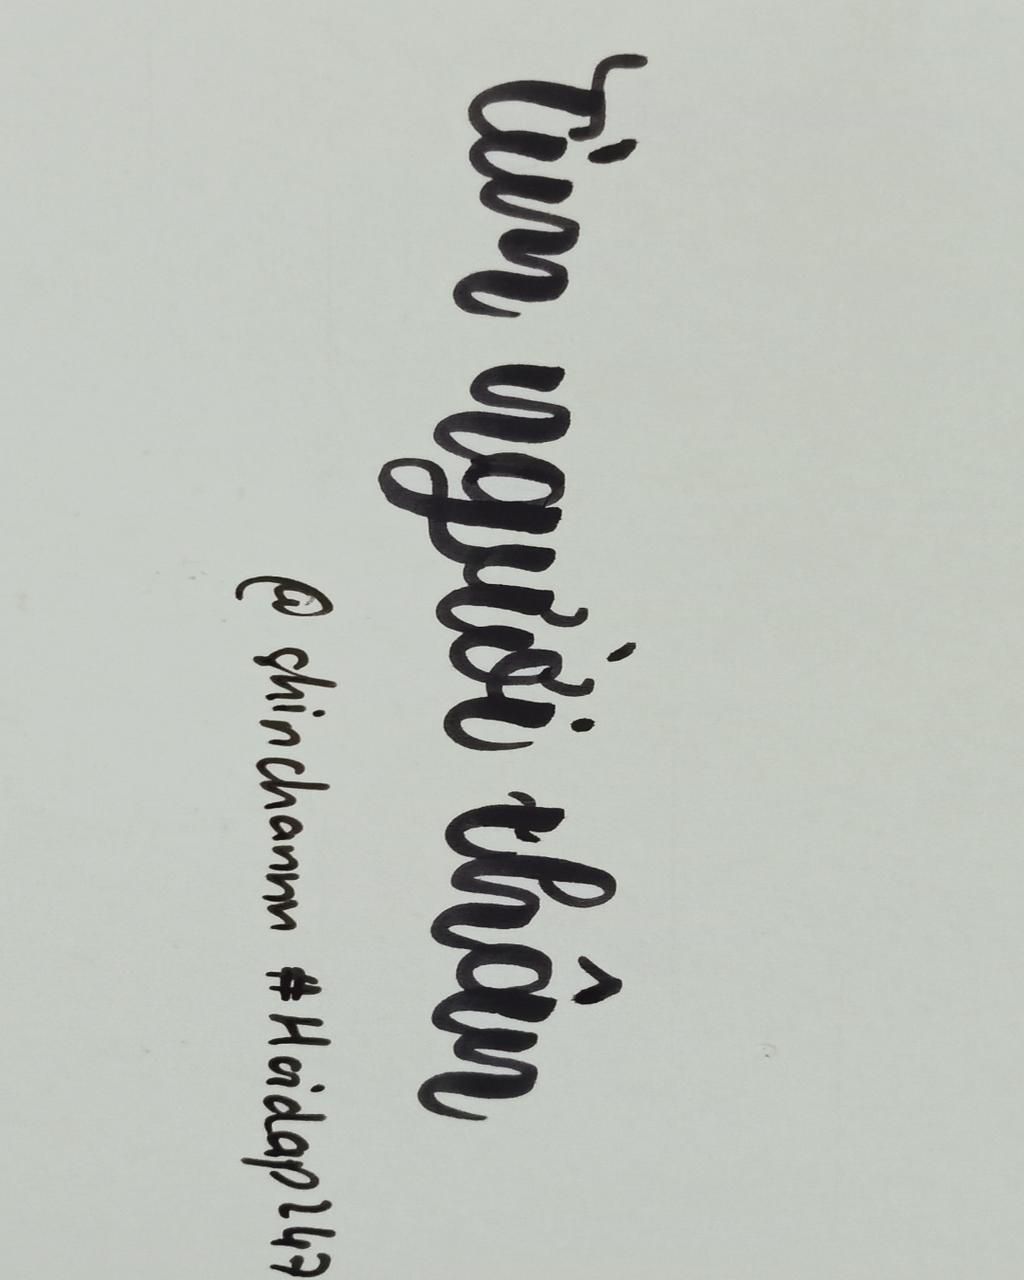 Tìm người thân
@shinchannn #Hoidap247